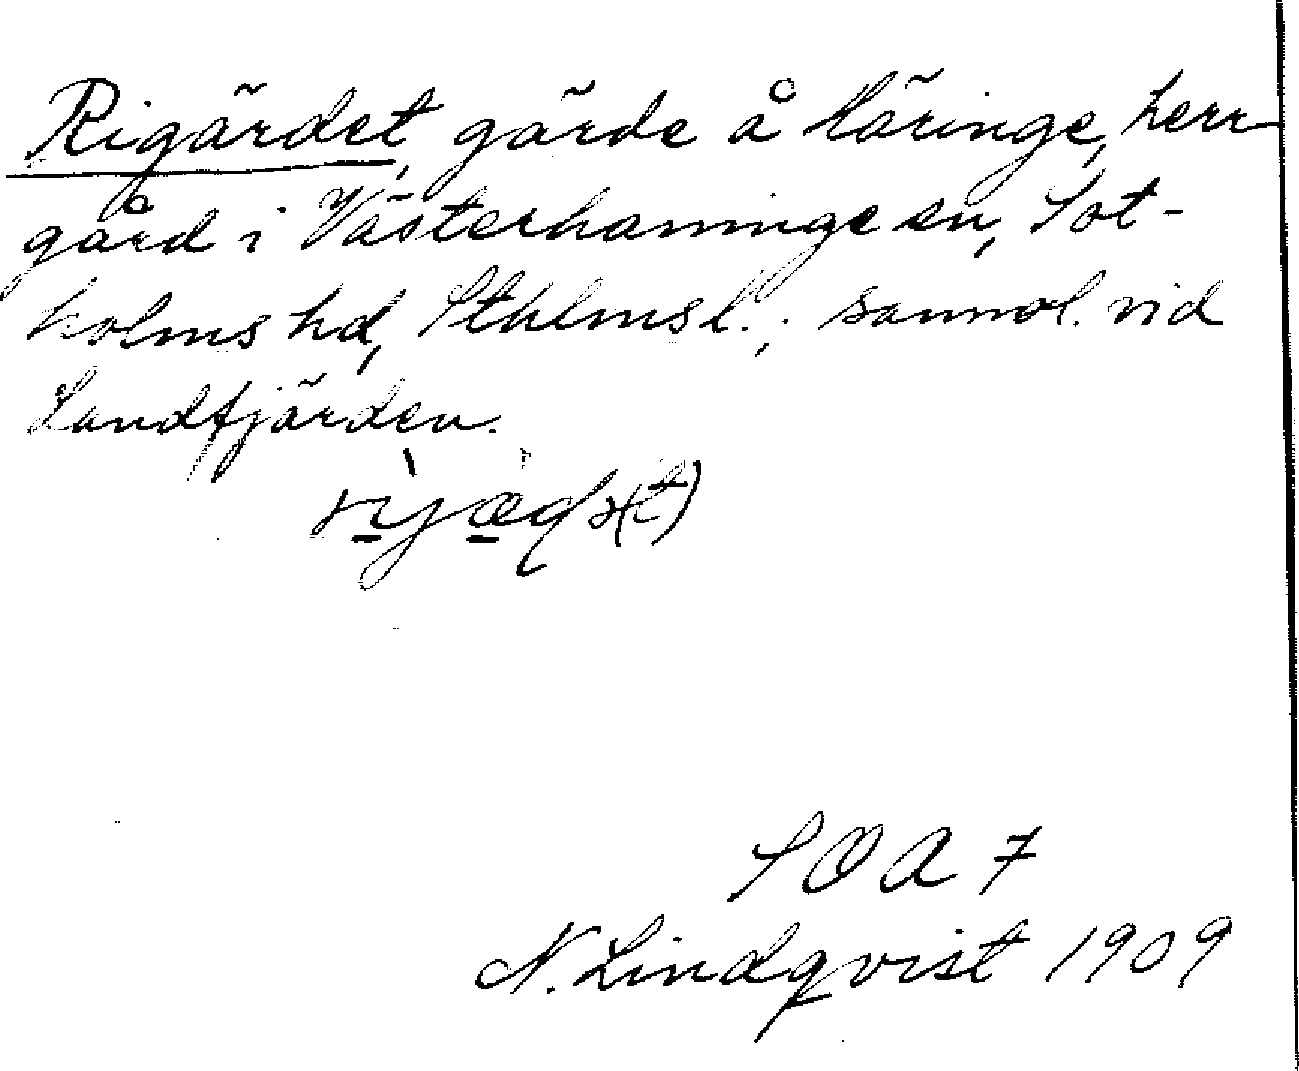 Rigärdet, gärde å Häringe, herr-
gård i Västerhaninge sn, Sot-
holms hd, Sthlms l.; sannol. vid
Landfjärden.
SOA 7
N. Lindqvist 1909